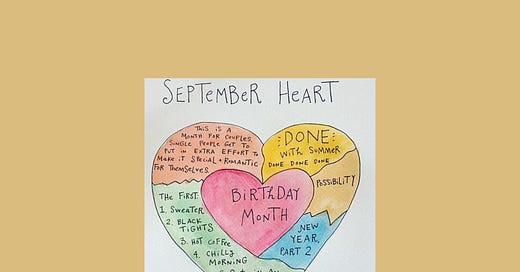 SEPTEMBER HEART
THIS IS A
MONTH FOR COUPLES.
SINGLE PEOPLE GET TO
PUT IN EXTRA EFFORT TO
MAKE IT SPECIAL + ROMANTIC
FOR THEMSELVES.
DONE
WITH SUMMER
DONE DONE DONE
POSSIBILITY
BIRTHDAY
MONTH
THE FIRST:
1. SWEATER
2. BLACK
TIGHTS
3. HOT COFFEE
4. CHILLY
MORNING
NEW
YEAR,
PART 2